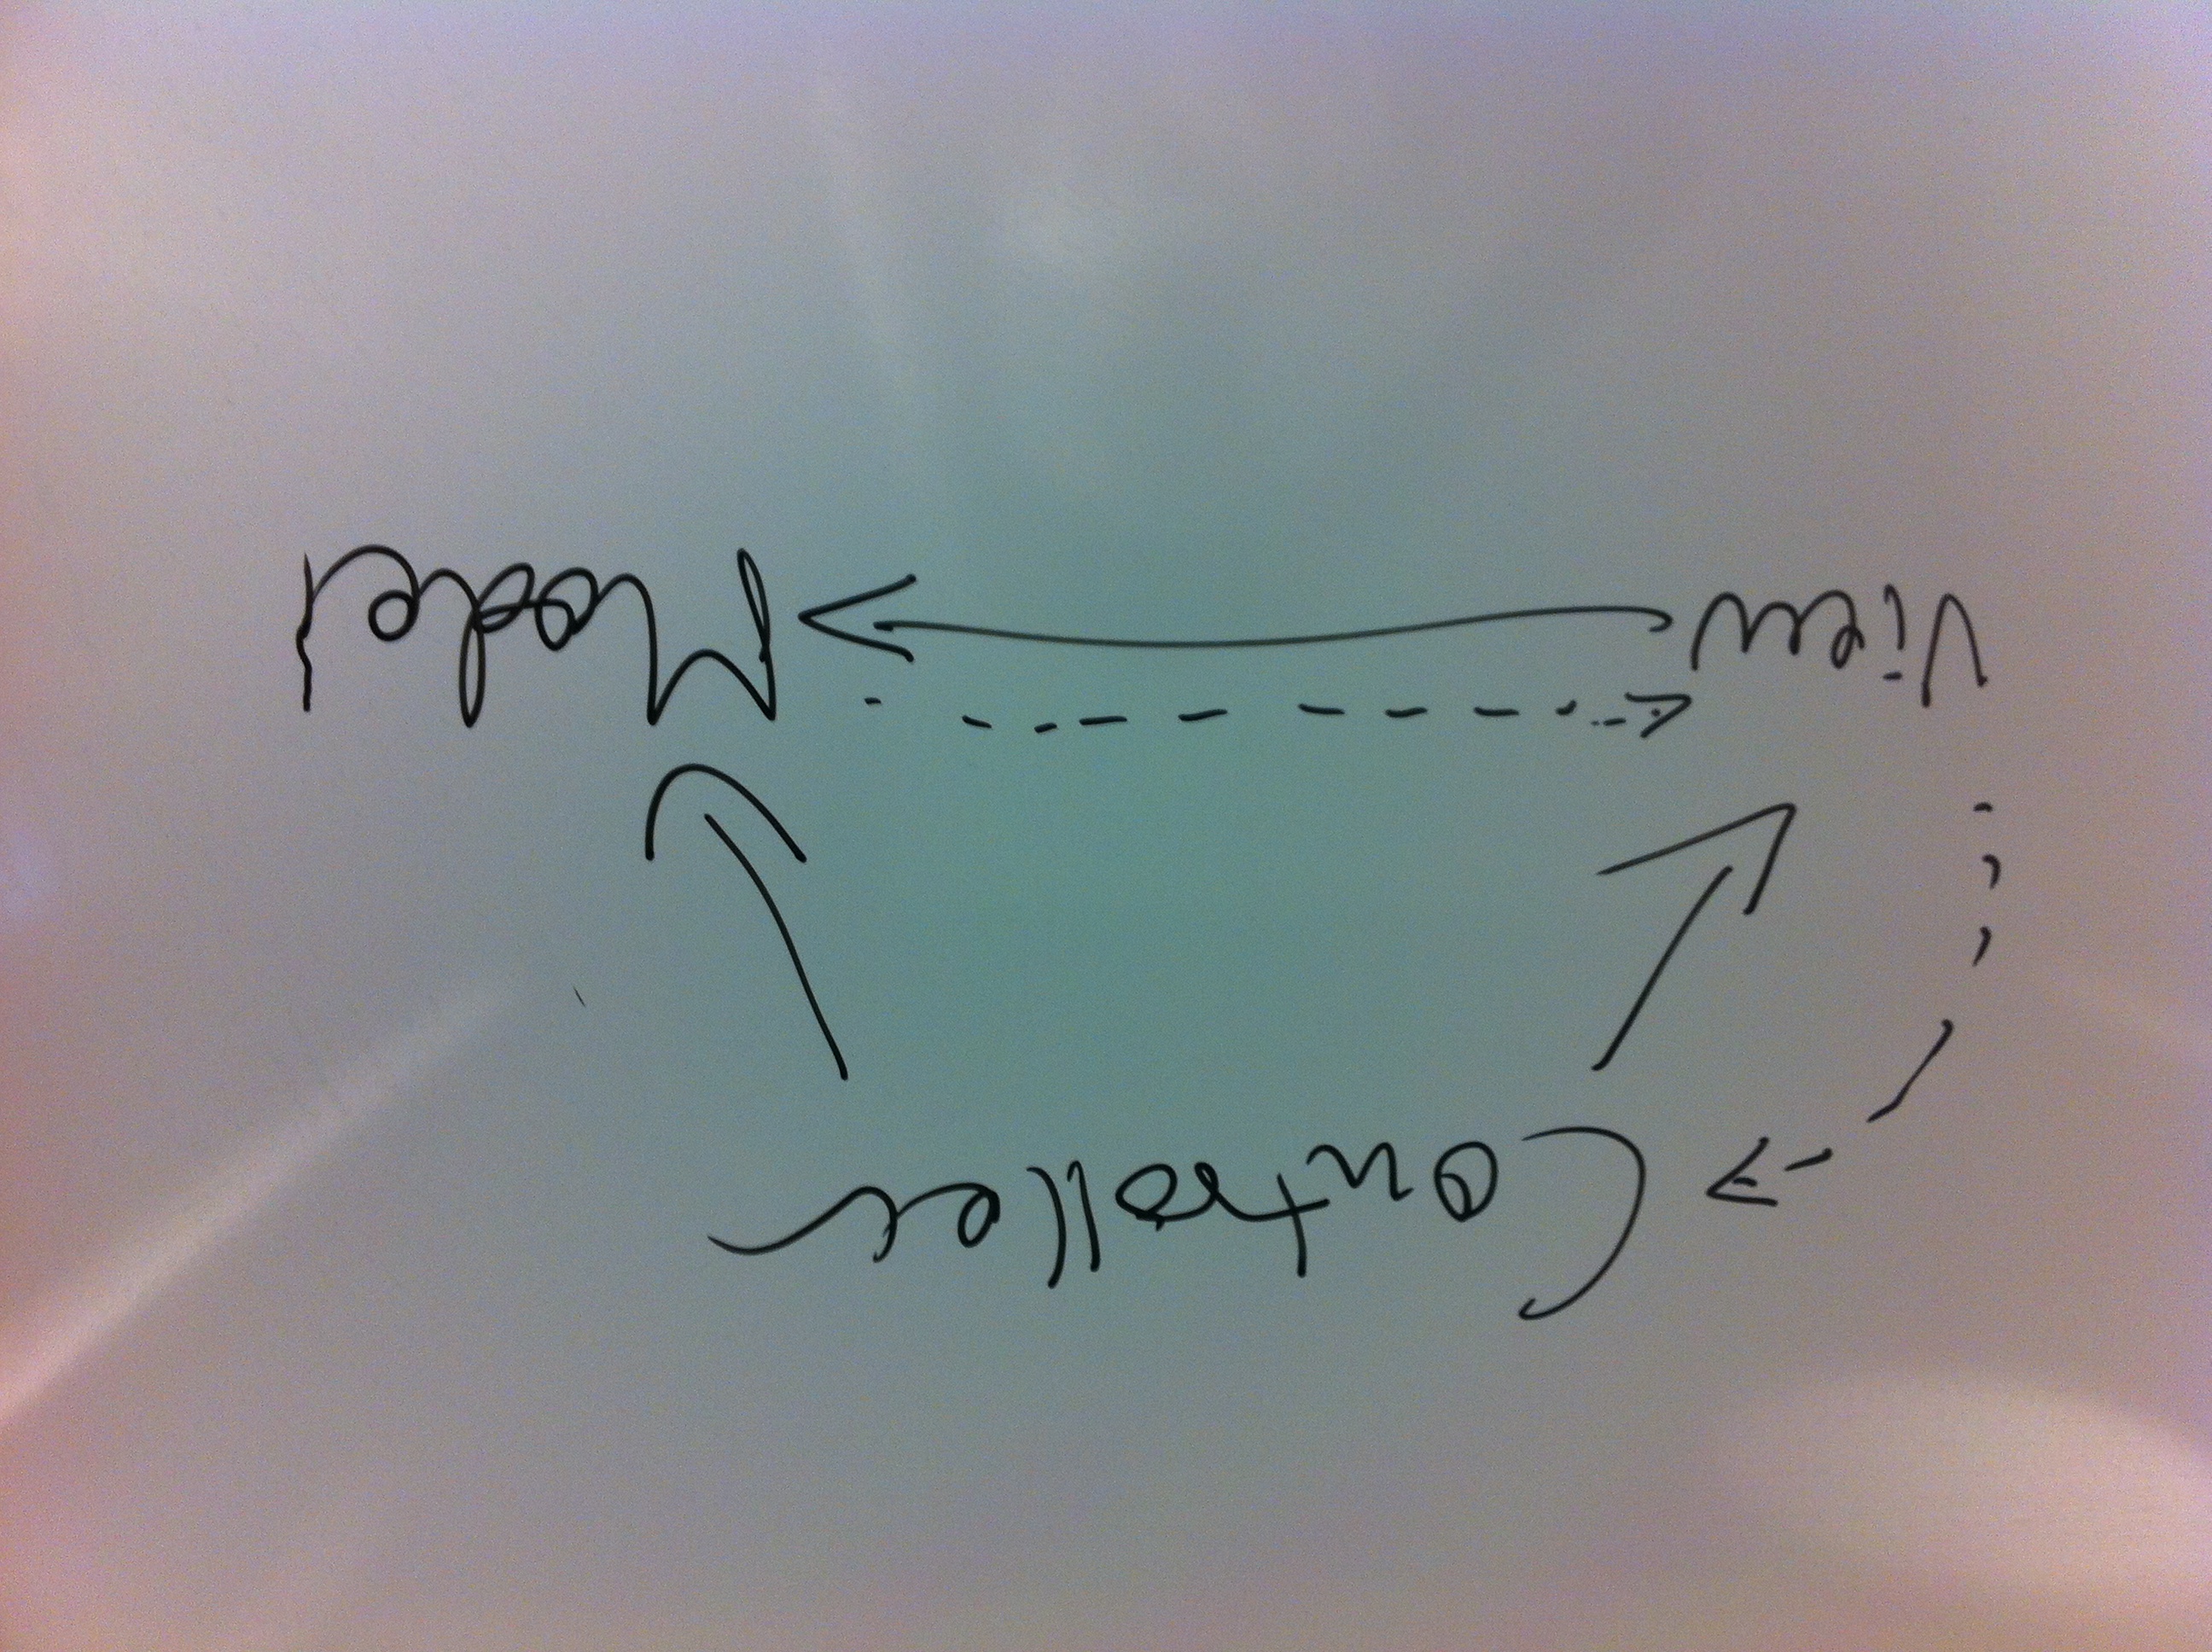 Controller
View Model